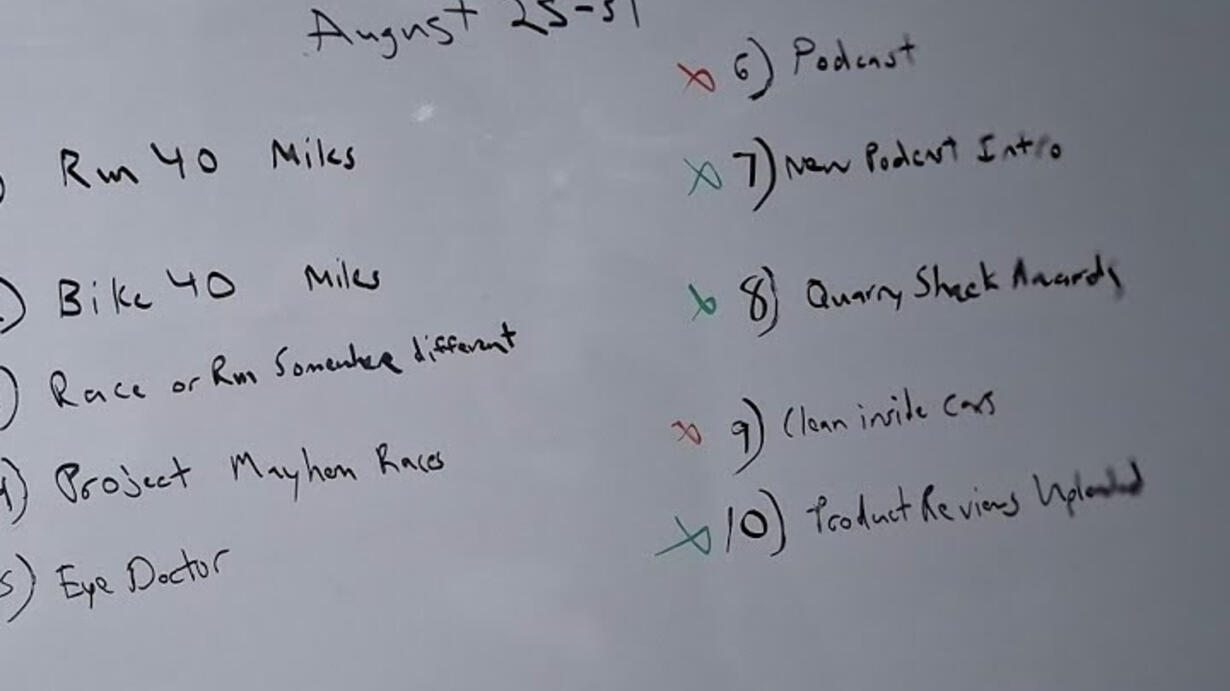 August 25-31
) Run 40 Miles
) Bike 40 Miles
) Race or Run Somewhere different
4) Project Mayhem Races
5) Eye Doctor
X 6) Podcast
X 7) New Podcast Intro
X 8) Quarry Shack Awards
X 9) Clean inside cars
X 10) Product Reviews Uploaded